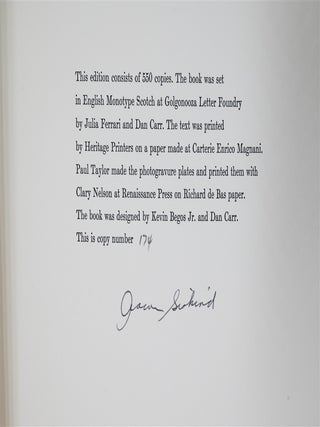 This edition consists of 550 copies. The book was set
in English Monotype Scotch at Golgonooza Letter Foundry
by Julia Ferrari and Dan Carr. The text was printed
by Heritage Printers on a paper made at Carterie Enrico Magnani.
Paul Taylor made the photogravure plates and printed them with
Clary Nelson at Renaissance Press on Richard de Bas paper.
The book was designed by Kevin Begos Jr. and Dan Carr.
This is copy number 174